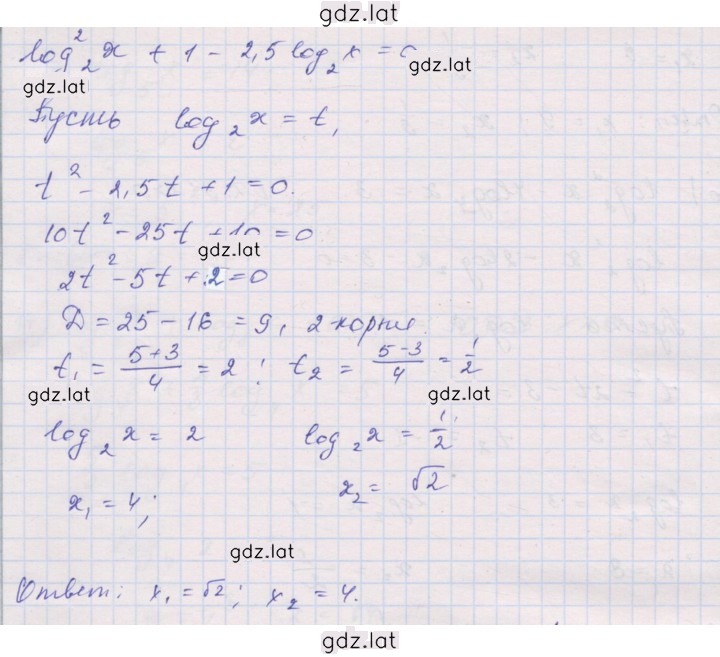 gdz.lat
log₂²x + 1 - 2,5 log₂x = 0
gdz.lat
gdz.lat
Пусть log₂x = t,
t² - 2,5t + 1 = 0.
10t² - 25t + 10 = 0
gdz.lat
2t² - 5t + 2 = 0
Д = 25 - 16 = 9, 2 корня.
t₁ = (5+3)/4 = 2 ; t₂ = (5-3)/4 = 1/2
gdz.lat gdz.lat
log₂x = 2 log₂x = 1/2
x₁ = 4; x₂ = √2
gdz.lat
Ответ: x₁ = √2; x₂ = 4.
gdz.lat